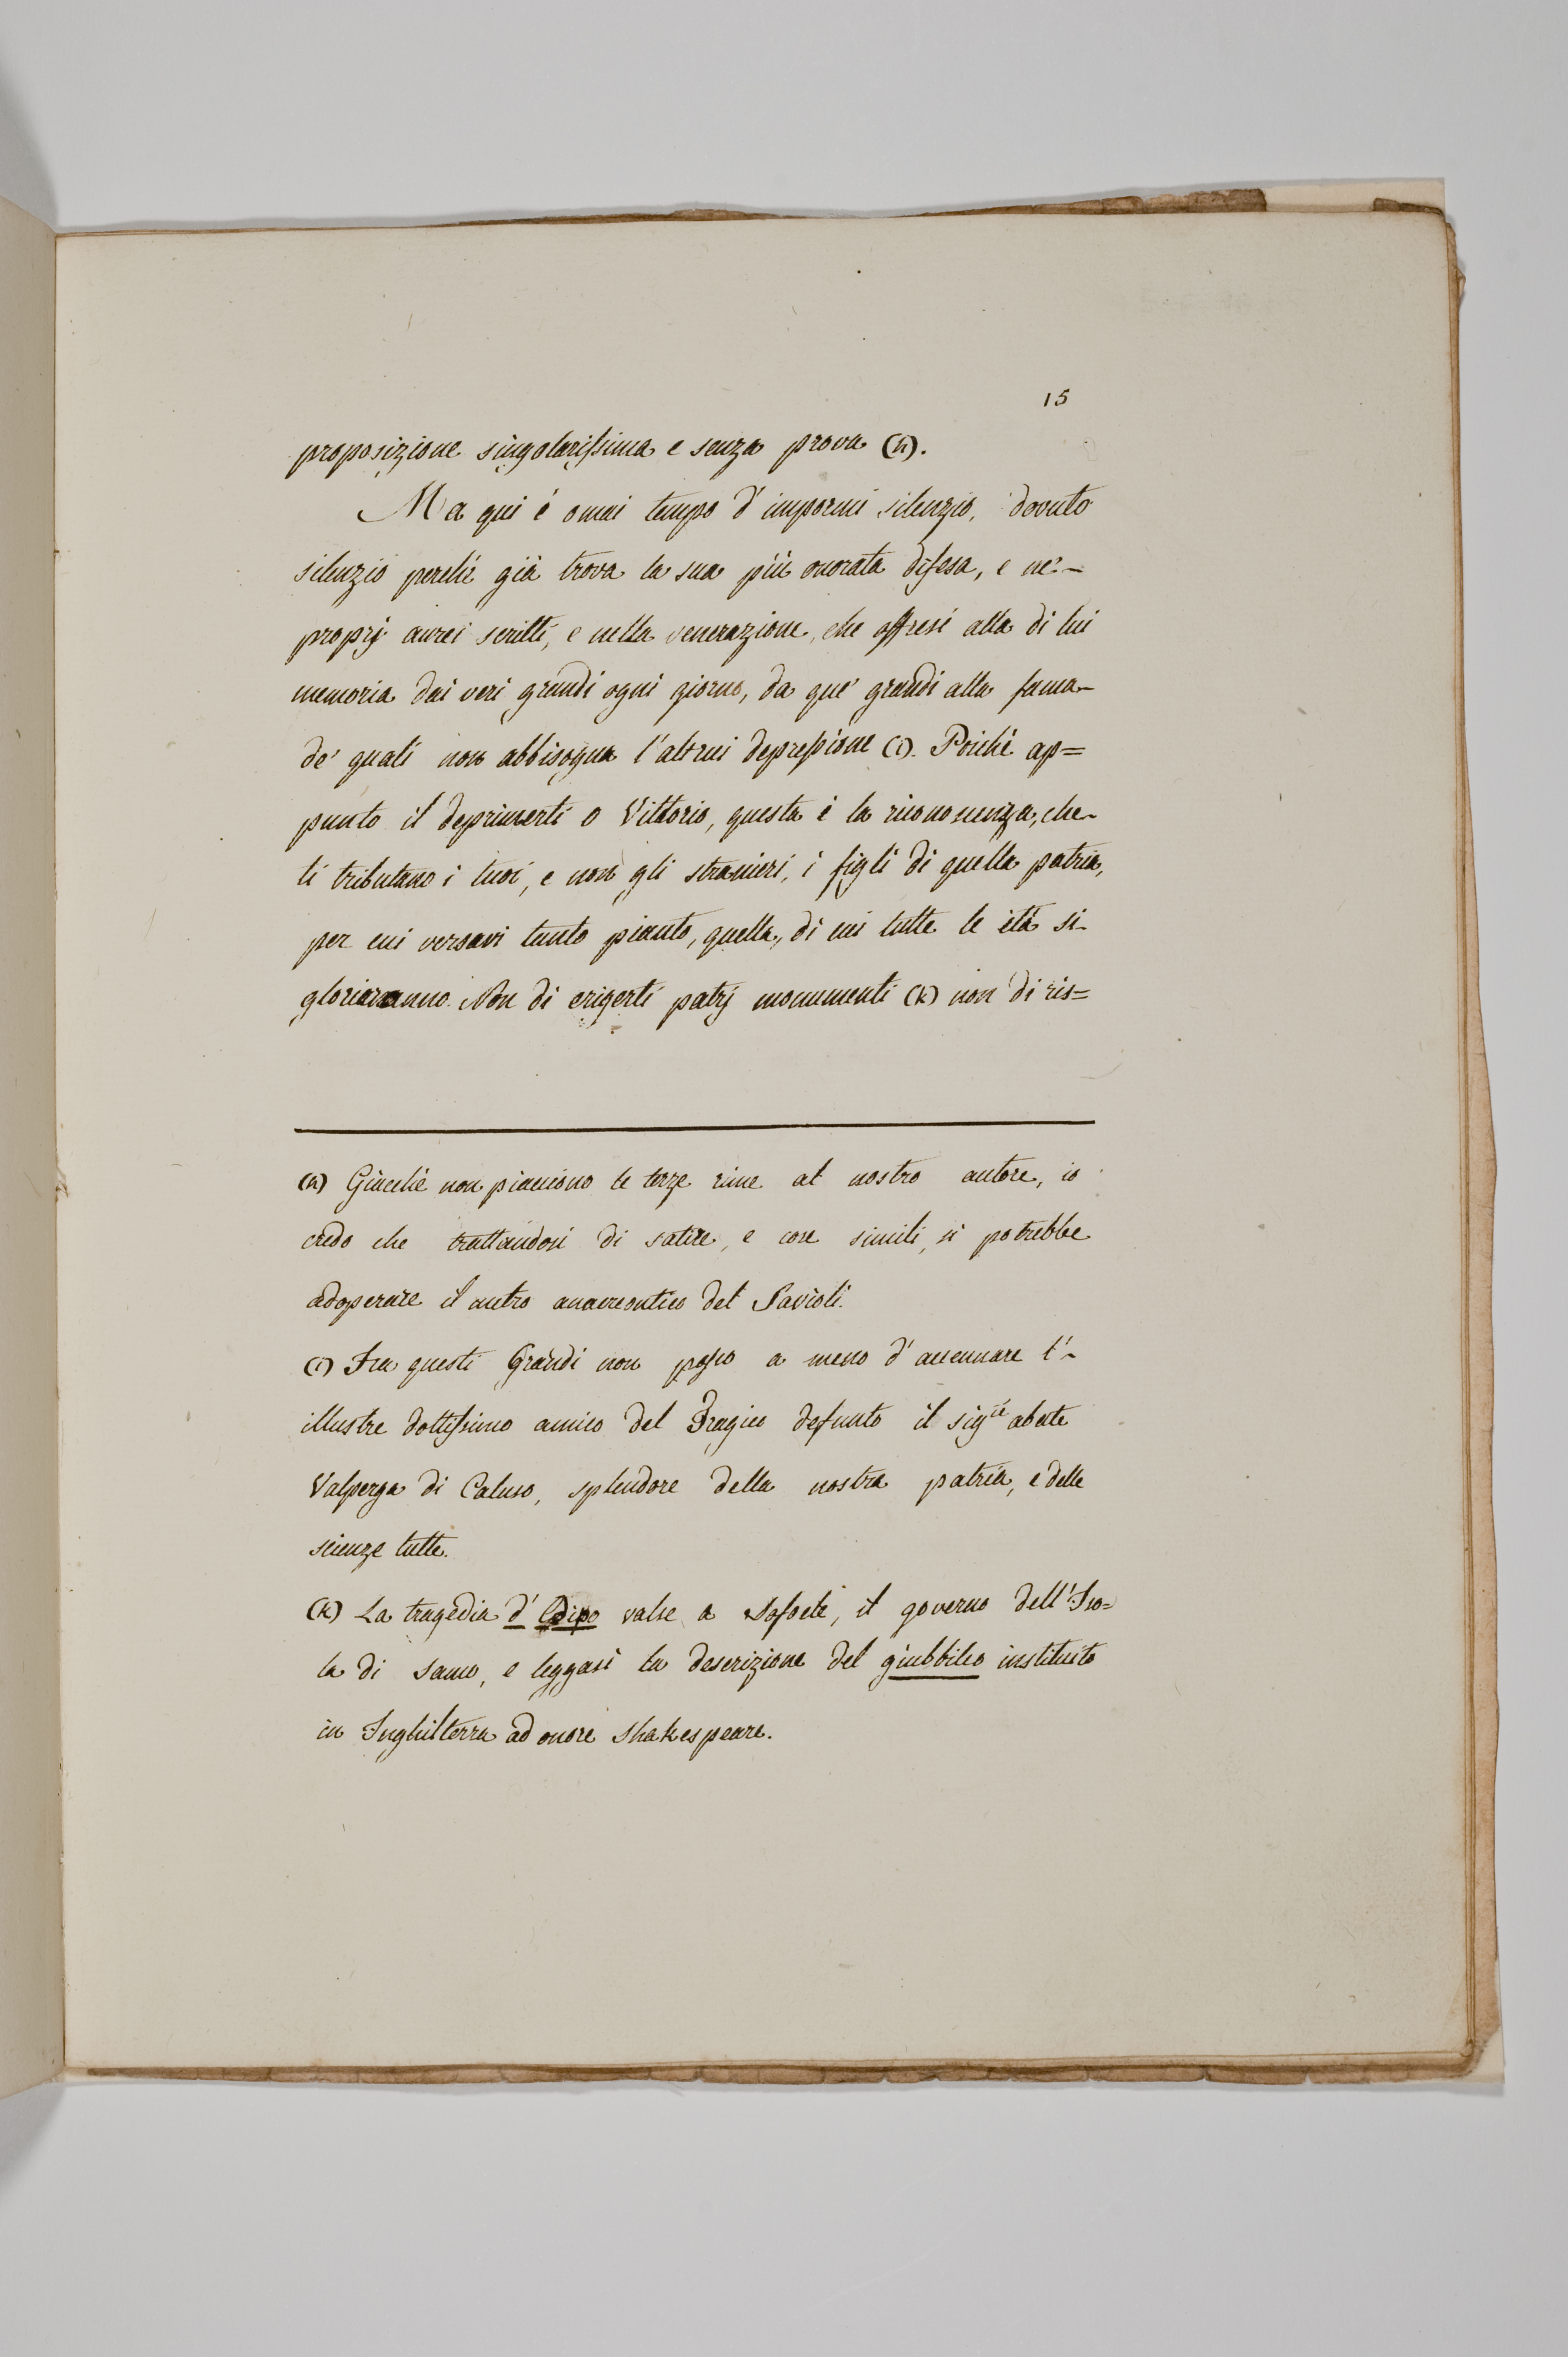 15
proposizione singolarissima e senza prova (h).
Ma qui è omai tempo d'impormi silenzio, dovuto
silenzio perchè già trova la sua più onorata difesa, e ne'-
proprj aurei scritti, e nella venerazione, che offresi alla di lui
memoria dai veri grandi ogni giorno, da que' grandi alla fama-
de' quali non abbisogna l'altrui depressione (i). Poichè ap=
punto il deprimerti o Vittorio, questa è la riconoscenza, che-
ti tributano i tuoi, e non gli stranieri, i figli di quella patria,
per cui versavi tanto pianto, quella, di cui tutte le età si-
glorieranno. Non di erigerti patrj monumenti (k) non di ris=
(h) Giacchè non piacciono le terze rime al nostro autore, io
credo che trattandosi di satire, e cose simili, si potrebbe
adoperare il metro anacreontico del Savioli.
(i) Fra questi Grandi non posso a meno d'accennare l'-
illustre dottissimo amico del Tragico defunto il sig.re abate
Valperga di Caluso, splendore della nostra patria, e delle
scienze tutte.
(k) La tragedia d' Edipo valse a Sofocle, il governo dell'Iso=
la di Samo, e leggasi la descrizione del giubbileo instituito
in Inghilterra ad onore Shakespeare.